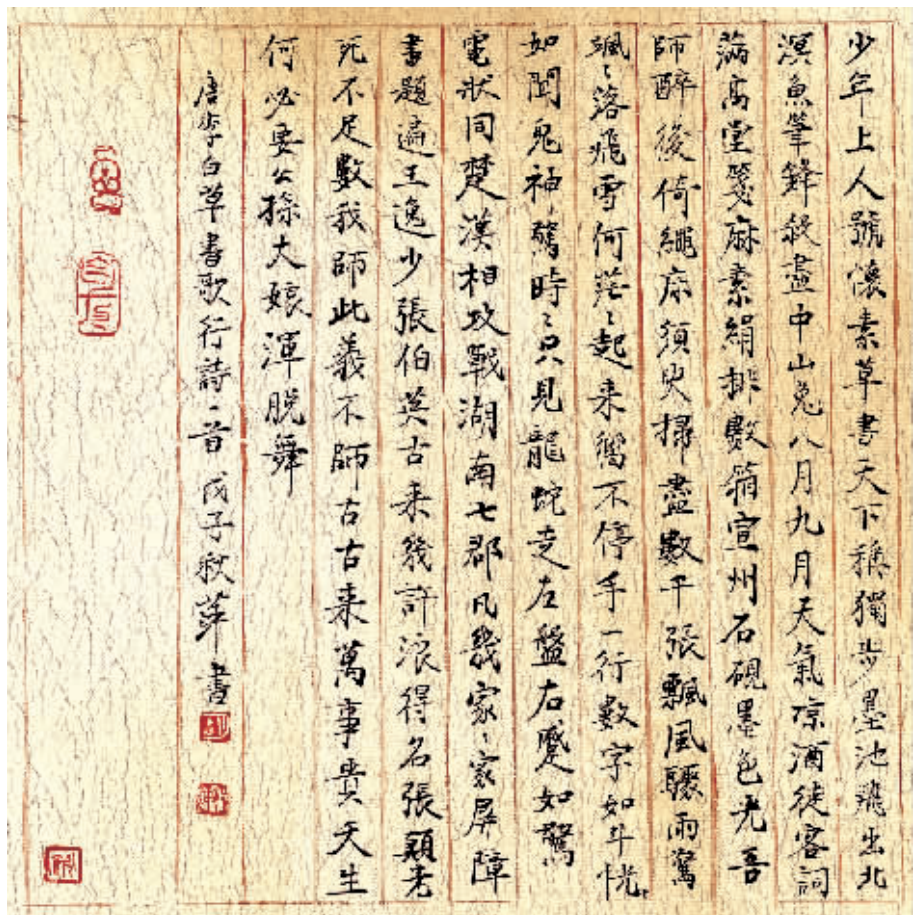 少年上人號懷素草書天下稱獨步墨池飛出北
溟魚筆鋒殺盡中山兔八月九月天氣凉酒徒客詞
滿高堂箋麻素絹排數箱宣州石硯墨色光吾
師醉後倚繩床須臾掃盡數千張飄風驟雨驚
颯〻落飛雪何茫〻起来不停手一行數字如斗恍〻
如聞鬼神驚時〻只見龍蛇走左盤右蹙如驚
電狀同楚漢相攻戰湖南七郡凡幾家〻家屏障
書題遍王逸少張伯英古来幾許浪得名張顛老
死不足數我師此義不師古古来萬事貴天生
何必要公孫大娘渾脫舞
唐李白草書歌行詩一首 戊子秋萍書